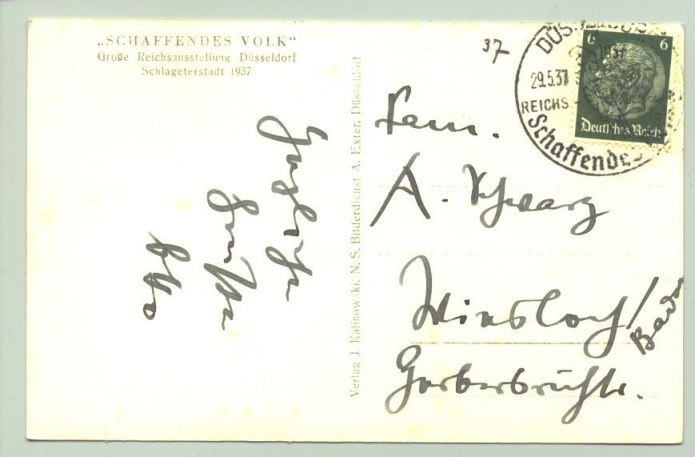 „SCHAFFENDES VOLK“
Große Reichsausstellung Düsseldorf
Schlageterstadt 1937
Herzliche
Grüße
Otto
Verlag J. Kalinowski, N. S. Bilderdienst A. Exter, Düsseldorf
37
DÜSSELDORF
29.5.37
REICHS
Schaffendes
6 6
Deutsches Reich
Fam.
A. Schwarz
Wiesloch/
Baden
Gerberbruchstr.